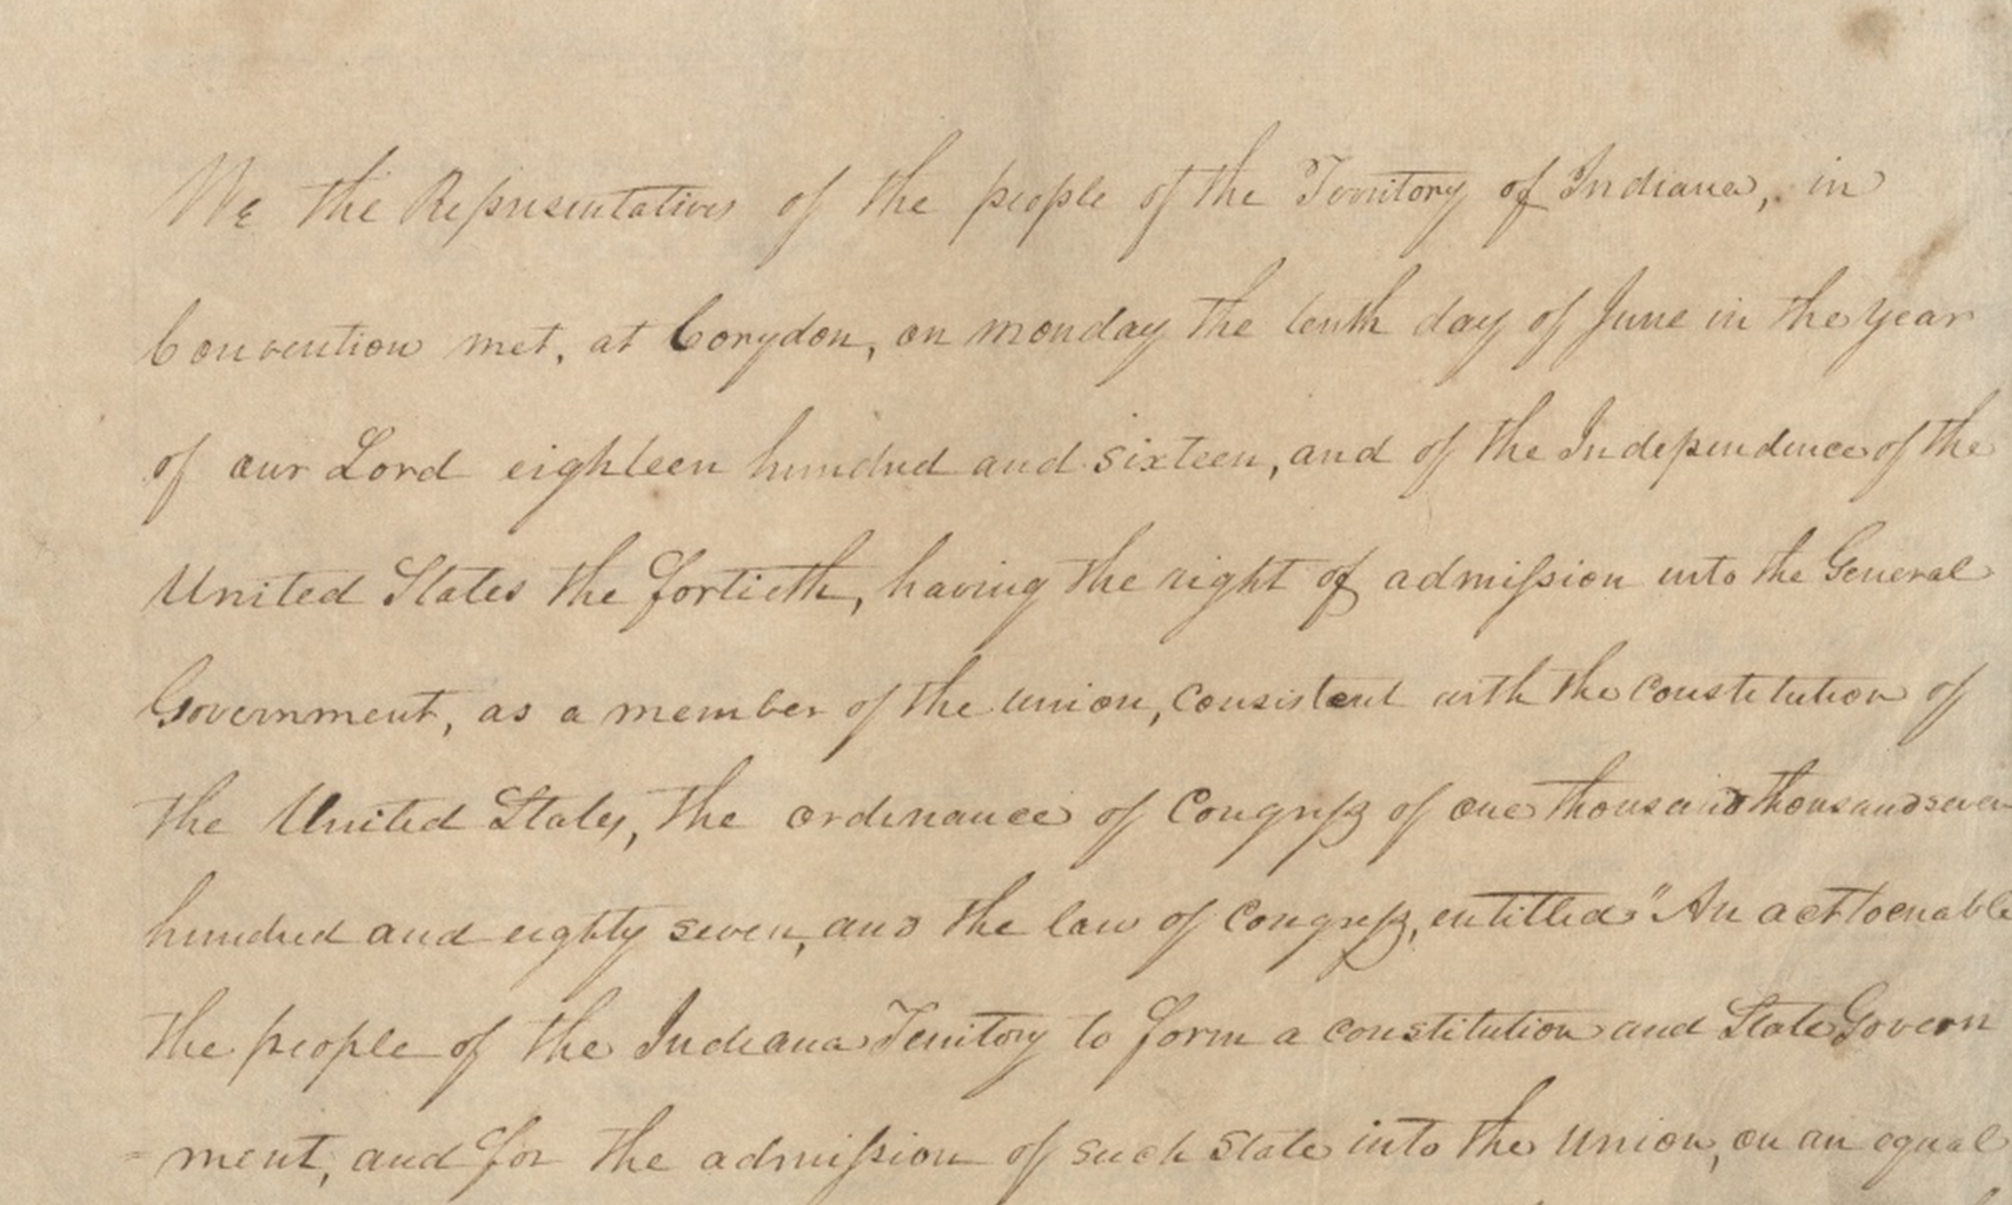 We the Representatives of the people of the Territory of Indiana, in
Convention met, at Corydon, on monday the tenth day of June in the year
of our Lord eighteen hundred and sixteen, and of the Independence of the
United States the fortieth, having the right of admission into the General
Government, as a member of the union, consistent with the constitution of
the United States, the ordinance of Congress of one thousand thousand seven
hundred and eighty seven, and the law of Congress, entitled "An act to enable
the people of the Indiana Territory to form a constitution and State Govern
ment, and for the admission of such State into the union, on an equal